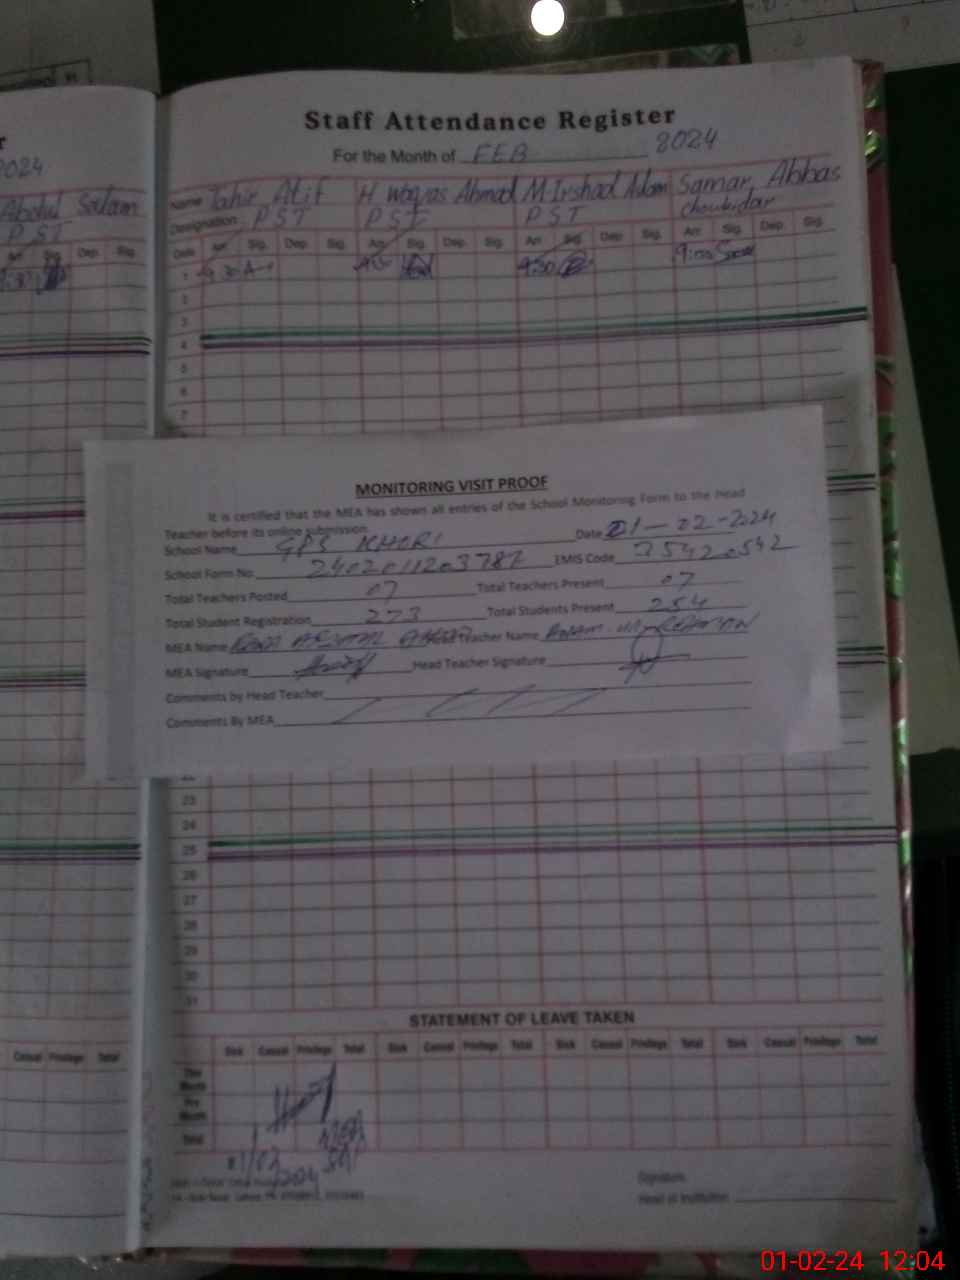 Staff Attendance Register
For the Month of FEB 2024
2024
Abdul Salam
PST
Name Tahir Atif H Waqas Ahmad M Irshad Alam Samar Abbas
Designation PST PST PST Chowkidar
Arr. Sig. Dep. Sig.
Date Arr. Sig. Dep. Sig. Arr. Sig. Dep. Sig. Arr. Sig. Dep. Sig. Arr. Sig. Dep. Sig.
1 9:30 9:30 9:00
2
3
4
5
6
7
MONITORING VISIT PROOF
It is certified that the MEA has shown all entries of the School Monitoring Form to the Head
Teacher before its online submission.
School Name GPS KHORI Date 01-02-2024
School Form No. 2402011203787 EMIS Code 75420542
Total Teachers Posted 07 Total Teachers Present 07
Total Student Registration 273 Total Students Present 254
MEA Name Teacher Name
MEA Signature Head Teacher Signature
Comments by Head Teacher
Comments By MEA
23
24
25
26
27
28
29
30
31
STATEMENT OF LEAVE TAKEN
Casual Privilege Total
Sick Casual Privilege Total Sick Casual Privilege Total Sick Casual Privilege Total Sick Casual Privilege Total
This Month
Pre Month
Total
MEA
01/02/2024
Signature
Head of Institution
01-02-24 12:04